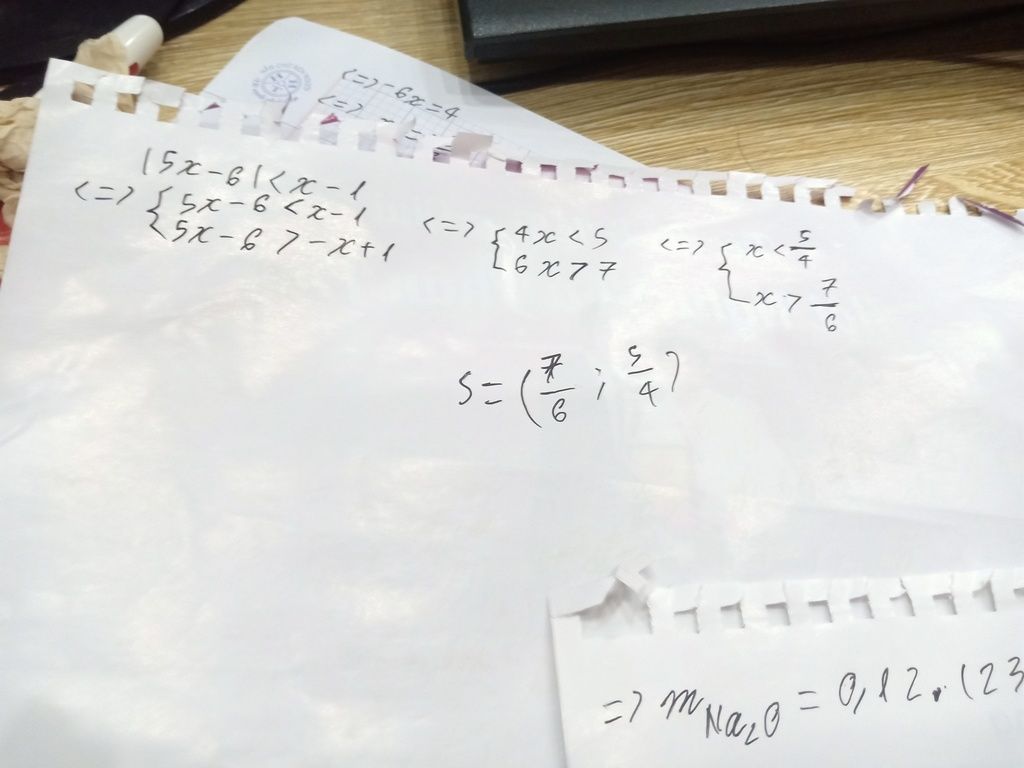 <=> -6x = 4
<=> x =
|5x - 6| < x - 1
<=> { 5x - 6 < x - 1
5x - 6 > -x + 1
<=> { 4x < 5
6x > 7
<=> { x < 5/4
x > 7/6
S = (7/6 ; 5/4)
=> mNa₂O = 0,12.(23